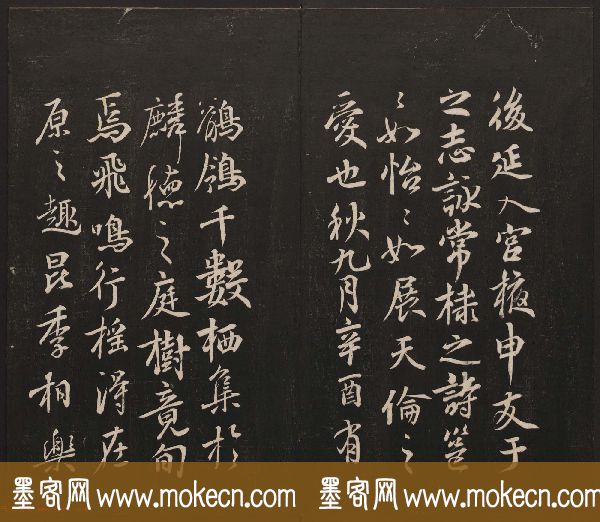 後延入宮掖申友于
之志詠常棣之詩邕
〻如怡〻如展天倫之
愛也秋九月辛酉有
鶺鴒千數栖集於
麟德之庭樹竟旬
焉飛鳴行摇得在
原之趣昆季相樂
墨客网 www.mokecn.com 墨客网 www.mokecn.com